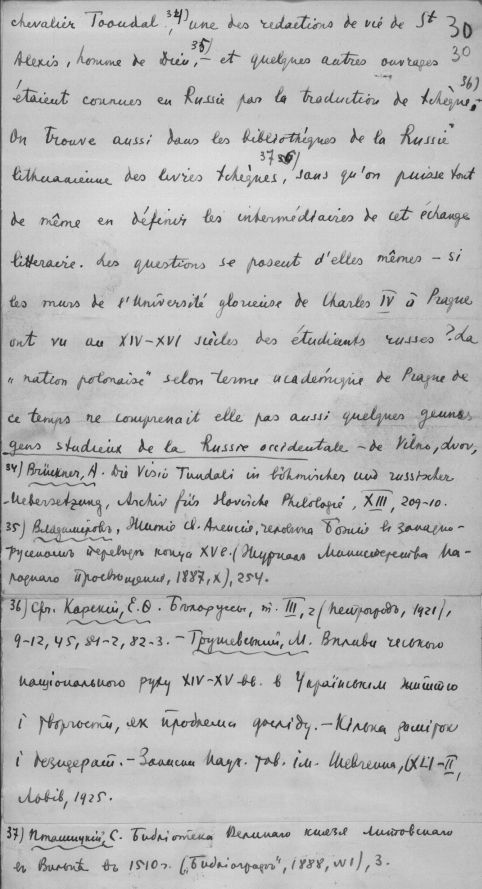 chevalier Tooudal,³⁴⁾ une des redactions de vie de St 30
Alexis, homme de Dieu,³⁵⁾– et quelques autres ouvrages 30
étaient connues en Russie par la traduction de tchèque.³⁶⁾–
On trouve aussi dans les bibliothéques de la Russie"
lithuanienne des livres tchèques,³⁷⁾ sans qu'on puisse tout
de même en définir les intermédiaires de cet échange
litteraire. Les questions se posent d'elles mêmes – si
les murs de l'Université glorieuse de Charles IV à Prague
ont vu au XIV–XVI siècles des étudiants russes? La
„nation polonaise" selon terme académique de Prague de
ce temps ne comprenait elle pas aussi quelques geunes
gens studieux de la Russie occidentale – de Vilno, Lvov,
34) Brückner, A. Die Visio Tundali in böhmischer und russischer
Uebersetzung, Archiv für slavische Philologie, XIII, 209-10.
35) Владимировъ, Житіе св. Алексія, человѣка Божія въ западно-
русскомъ переводѣ конца XV в. (Журналъ Министерства На-
роднаго Просвѣщенія, 1887, X), 254.
36) Срв. Карскій, Е. Ѳ. Бѣлоруссы, т. III, 2 (Петроградъ, 1921),
9-12, 45, 81-2, 82-3. – Грушевський, М. Впливи чеського
національного руху XIV-XV вв. в Українськім життю
і творчости, як проблема досліду. – Кілька заміток
і дезидерат. – Записки Наук. Тов. ім. Шевченка, CXLI-II,
Львів, 1925.
37) Пташицкій, С. Библіотека Великаго князя литовскаго
въ Вильнѣ въ 1510 г. („Библіографъ", 1888, №1), 3.